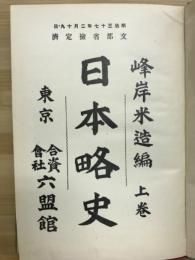 明治三十七年二月十九日
文部省檢定濟
峰岸米造編
上巻
日本略史
東京
合資會社
六盟館